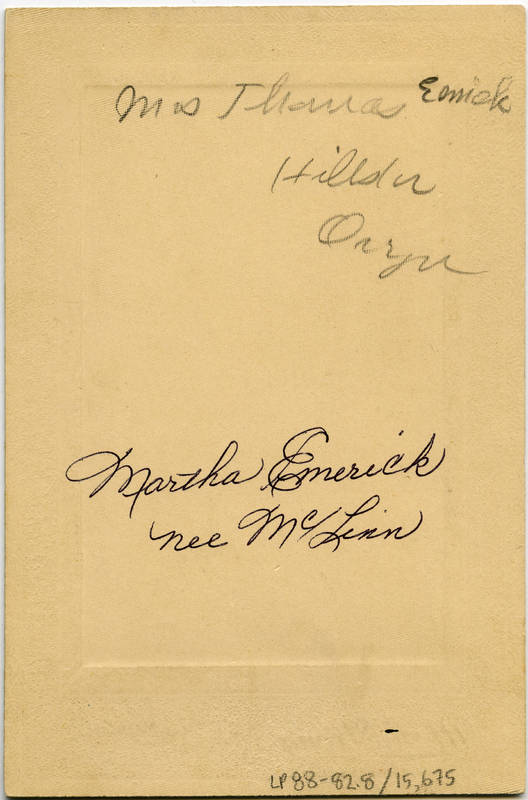 Mrs Thomas Emrick
Hillsdr
Orego
Martha Emerick
nee McLinn
LP88-82.8/15,675